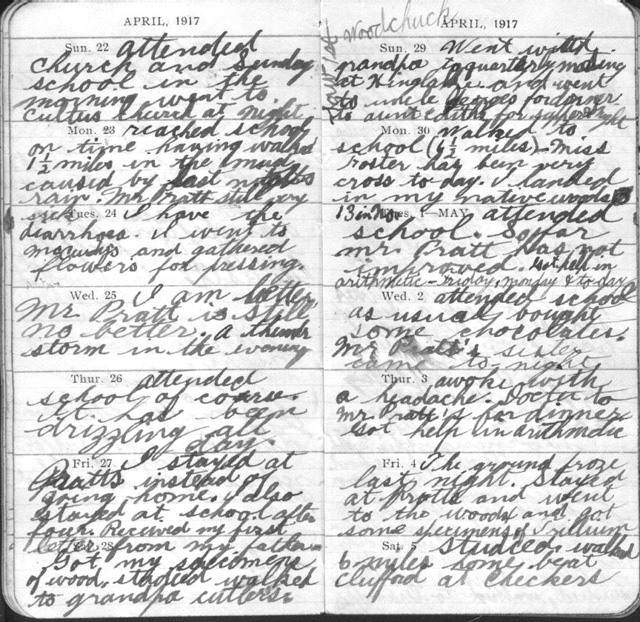 APRIL, 1917
Sun. 22 attended
church and Sunday
school in the
morning went to
Cultus Church at night
Mon. 23 reached school
on time having walked
1 1/2 miles in the mud
caused by last night's
rain. Mr. Pratt still very
sick
Tues. 24 I have the
diarrhoea. I went to
and gathered
flowers for pressing.
Wed. 25 I am better,
Mr. Pratt is still
no better. A thunder
storm in the evening
Thur. 26 attended
school of course.
it has been
drizzling all
day.
Fri. 27 I stayed at
Pratts instead of
going home. I also
stayed at school after
four. Received my first
letter from my father
Sat. 28
Got my specimens
of wood, started walked
to grandpa Cutlers.
APRIL, 1917
Saw 1st Woodchuck
Sun. 29 Went with
grandpa to quarterly meeting
at and went
to uncle Georges for dinner
to aunt Ediths for supper
night
Mon. 30 Walked to
school (6 1/2 miles) - Miss
Foster has been very
cross to day. I handed
in my native woods
13 in No.
Tues. 1 MAY attended
school. So far
Mr. Pratt has not
improved. Got help in
arithmetic - Friday, Monday & to day
Wed. 2 attended school
as usual, bought
some chocolates.
Mr Pratt's sister
came to night
Thur. 3 awoke with
a headache. to
Mr. Pratt's for dinner
Got help in arithmetic
Fri. 4 The ground froze
last night. Stayed
at Pratts and went
to the woods and got
some specimens of Trillium
Sat. 5 studied, walked
6 miles some beat
Clifford at checkers